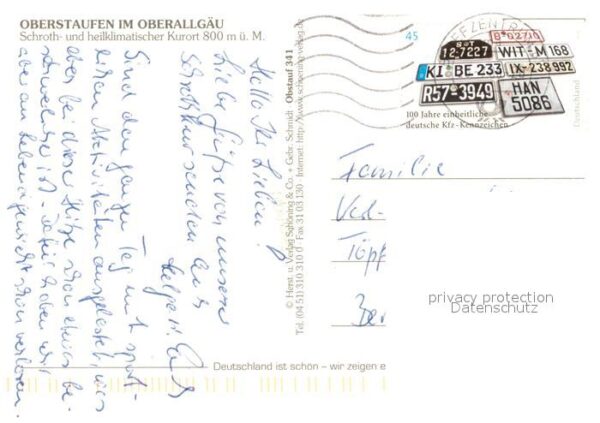 OBERSTAUFEN IM OBERALLGÄU
Schroth- und heilklimatischer Kurort 800 m ü. M.
Hallo Ihr Lieben!
Liebe Grüße von unserer
Schrothkur senden Euch
Sind den ganzen Tag mit sport-
lichen Aktivitäten ausgelastet, was
aber bei dieser Hitze schon etwas be-
schwerlich ist. Dafür haben wir
aber an Lebendgewicht schon verloren.
© Herst. u. Verlag Schöning & Co. + Gebr. Schmidt Obstauf 341
Tel. (04 51) 310 310 0 · Fax 31 03 130 · Internet: http://www.schoening-verlag.de
Deutschland ist schön – wir zeigen e
BRIEFZENTR
45
12-7227
8-62710
WIT-M 168
KI BE 233
IX-238 992
R57 3949
HAN
5086
100 Jahre einheitliche
deutsche Kfz-Kennzeichen
Deutschland
Familie
Töpf
Ber
privacy protection
Datenschutz